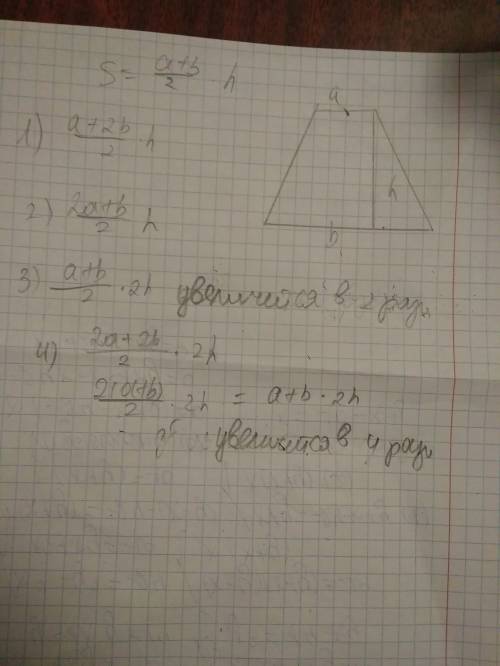 S = (a+b)/2 · h
a
1) (a+2b)/2 · h
h
2) (2a+b)/2 h
b
3) (a+b)/2 · 2h увеличится в 2 раза
4) (2a+2b)/2 · 2h
2(a+b)/2 · 2h = a+b · 2h
увеличится в 4 раза